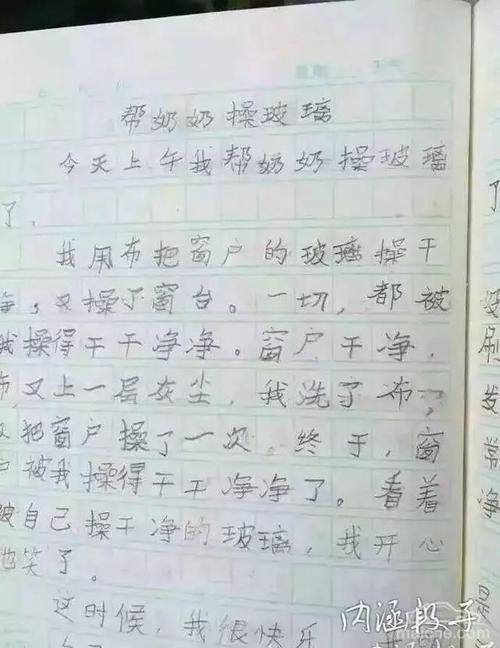 帮奶奶操玻璃
今天上午我帮奶奶操玻璃
了.
我用布把窗户的玻璃操干
净,又操了窗台。一切,都被
我操得干干净净。窗户干净,
布又上一层灰尘,我洗了布,
又把窗户操了一次,终于,窗
户被我操得干干净净了。看着
被自己操干净的玻璃,我开心
地笑了。
这时候,我很快乐
内涵段子
了
没
刷
发
常
净